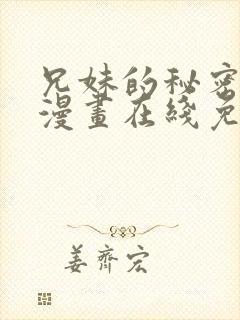 兄妹的秘密
漫畫在綫免
姜齊宏